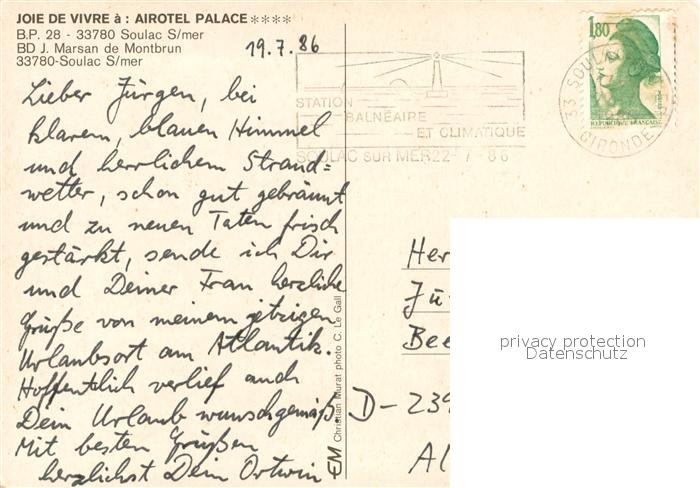 JOIE DE VIVRE à : AIROTEL PALACE ****
B.P. 28 - 33780 Soulac S/mer
BD J. Marsan de Montbrun
33780-Soulac S/mer
19.7.86
Lieber Jürgen, bei
klarem, blauen Himmel
und herrlichem Strand=
wetter, schon gut gebräunt
und zu neuen Taten frisch
gestärkt, sende ich Dir
und Deiner Frau herzliche
Grüße von meinem jetzigen
Urlaubsort am Atlantik.
Hoffentlich verlief auch
Dein Urlaub wunschgemäß.
Mit besten Grüßen
herzlichst Dein Ortwin
EM Christian Murat photo C. Le Gall
STATION
BALNÉAIRE
ET CLIMATIQUE
SOULAC SUR MER 22-7-86
1,80
REPUBLIQUE FRANÇAISE
33 SOULAC
GIRONDE
Her
Jü
Bee
D-239
Al
privacy protection
Datenschutz